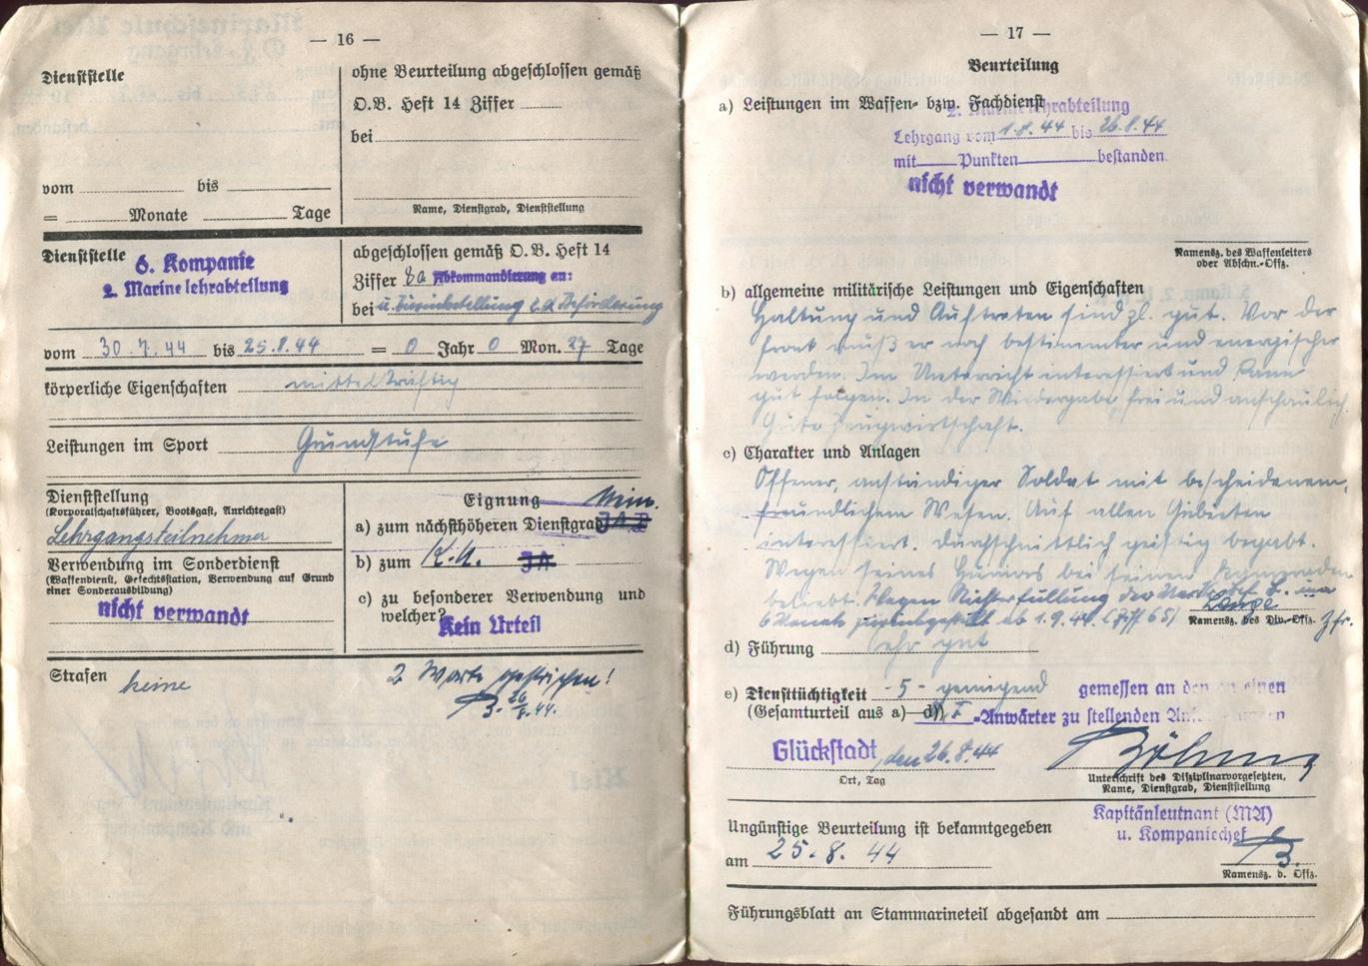 — 16 —
Dienststelle
vom bis
= Monate Tage
ohne Beurteilung abgeschlossen gemäß
O.B. Heft 14 Ziffer
bei
Name, Dienstgrad, Dienststellung
Dienststelle 6. Kompanie
2. Marinelehrabteilung
abgeschlossen gemäß O.B. Heft 14
Ziffer 8a Abkommandierung an:
bei u. Zurückstellung z. d. Beförderung
vom 30.7.44 bis 25.8.44 = 0 Jahr 0 Mon. 27 Tage
körperliche Eigenschaften mittelkräftig
Leistungen im Sport Grundstufe
Dienststellung
(Korporalschaftsführer, Bootsgast, Anrichtegast)
Lehrgangsteilnehmer
Verwendung im Sonderdienst
(Waffendienst, Gefechtsstation, Verwendung auf Grund
einer Sonderausbildung)
nicht verwandt
Eignung Nein.
a) zum nächsthöheren Dienstgrad JA
b) zum K.A. JA
c) zu besonderer Verwendung und
welcher? Kein Urteil
Strafen keine
2 Worte gestrichen!
B. 26/8.44.
— 17 —
Beurteilung
a) Leistungen im Waffen- bzw. Fachdienst
2. Marinelehrabteilung
Lehrgang vom 1.8.44 bis 26.8.44
mit Punkten bestanden
nicht verwandt
Namensz. des Waffenleiters
oder Abschn.-Offz.
b) allgemeine militärische Leistungen und Eigenschaften
Haltung und Auftreten sind zl. gut. Vor der
Front muß er noch bestimmter und energischer
werden. Im Unterricht interessiert und kann
gut folgen. In der Wiedergabe frei und anschaulich.
Gute Zeugwirtschaft.
c) Charakter und Anlagen
Offener, anständiger Soldat mit bescheidenem,
freundlichem Wesen. Auf allen Gebieten
interessiert. Durchschnittlich geistig begabt.
Wegen seines Humors bei seinen Kameraden
beliebt. Wegen Nichterfüllung der
6 Monate zurückgestellt ab 1.9.44. (Ziff 65)
Namensz. des Div.-Offz.
d) Führung sehr gut
e) Diensttüchtigkeit - 5 - genügend gemessen an den an einen
(Gesamturteil aus a)—d)) -Anwärter zu stellenden
Glückstadt, den 26.8.44
Ort, Tag
Böhm
Unterschrift des Disziplinarvorgesetzten,
Name, Dienstgrad, Dienststellung
Kapitänleutnant (MA)
u. Kompaniechef
Ungünstige Beurteilung ist bekanntgegeben
am 25.8.44
B.
Namensz. d. Offz.
Führungsblatt an Stammarineteil abgesandt am